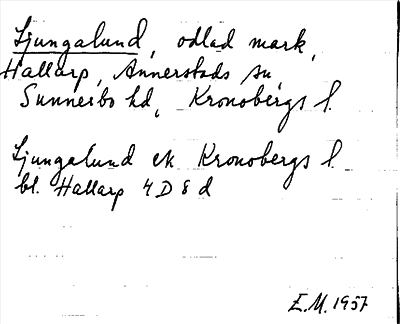 Ljungalund, odlad mark,
Hallarp, Annerstads sn,
Sunnerbo hd, Kronobergs l.
Ljungalund ek Kronobergs l.
bl. Hallarp 4 D 8 d
E.M. 1957